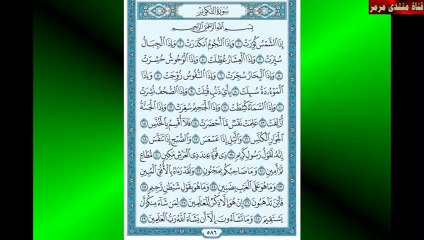 قناة منتدى مرمر
سُورَةُ التَّكْوِيرِ
بِسْمِ اللَّهِ الرَّحْمَٰنِ الرَّحِيمِ
إِذَا الشَّمْسُ كُوِّرَتْ ١ وَإِذَا النُّجُومُ انكَدَرَتْ ٢ وَإِذَا الْجِبَالُ
سُيِّرَتْ ٣ وَإِذَا الْعِشَارُ عُطِّلَتْ ٤ وَإِذَا الْوُحُوشُ حُشِرَتْ
٥ وَإِذَا الْبِحَارُ سُجِّرَتْ ٦ وَإِذَا النُّفُوسُ زُوِّجَتْ ٧ وَإِذَا
الْمَوْءُودَةُ سُئِلَتْ ٨ بِأَيِّ ذَنبٍ قُتِلَتْ ٩ وَإِذَا الصُّحُفُ نُشِرَتْ
١٠ وَإِذَا السَّمَاءُ كُشِطَتْ ١١ وَإِذَا الْجَحِيمُ سُعِّرَتْ ١٢ وَإِذَا الْجَنَّةُ
أُزْلِفَتْ ١٣ عَلِمَتْ نَفْسٌ مَّا أَحْضَرَتْ ١٤ فَلَا أُقْسِمُ بِالْخُنَّسِ
١٥ الْجَوَارِ الْكُنَّسِ ١٦ وَاللَّيْلِ إِذَا عَسْعَسَ ١٧ وَالصُّبْحِ إِذَا تَنَفَّسَ
١٨ إِنَّهُ لَقَوْلُ رَسُولٍ كَرِيمٍ ١٩ ذِي قُوَّةٍ عِندَ ذِي الْعَرْشِ مَكِينٍ ٢٠ مُّطَاعٍ
ثَمَّ أَمِينٍ ٢١ وَمَا صَاحِبُكُم بِمَجْنُونٍ ٢٢ وَلَقَدْ رَءَاهُ بِالْأُفُقِ الْمُبِينِ
٢٣ وَمَا هُوَ عَلَى الْغَيْبِ بِضَنِينٍ ٢٤ وَمَا هُوَ بِقَوْلِ شَيْطَانٍ رَّجِيمٍ ٢٥
فَأَيْنَ تَذْهَبُونَ ٢٦ إِنْ هُوَ إِلَّا ذِكْرٌ لِّلْعَالَمِينَ ٢٧ لِمَن شَاءَ مِنكُمْ أَن
يَسْتَقِيمَ ٢٨ وَمَا تَشَاءُونَ إِلَّا أَن يَشَاءَ اللَّهُ رَبُّ الْعَالَمِينَ ٢٩
٥٨٦